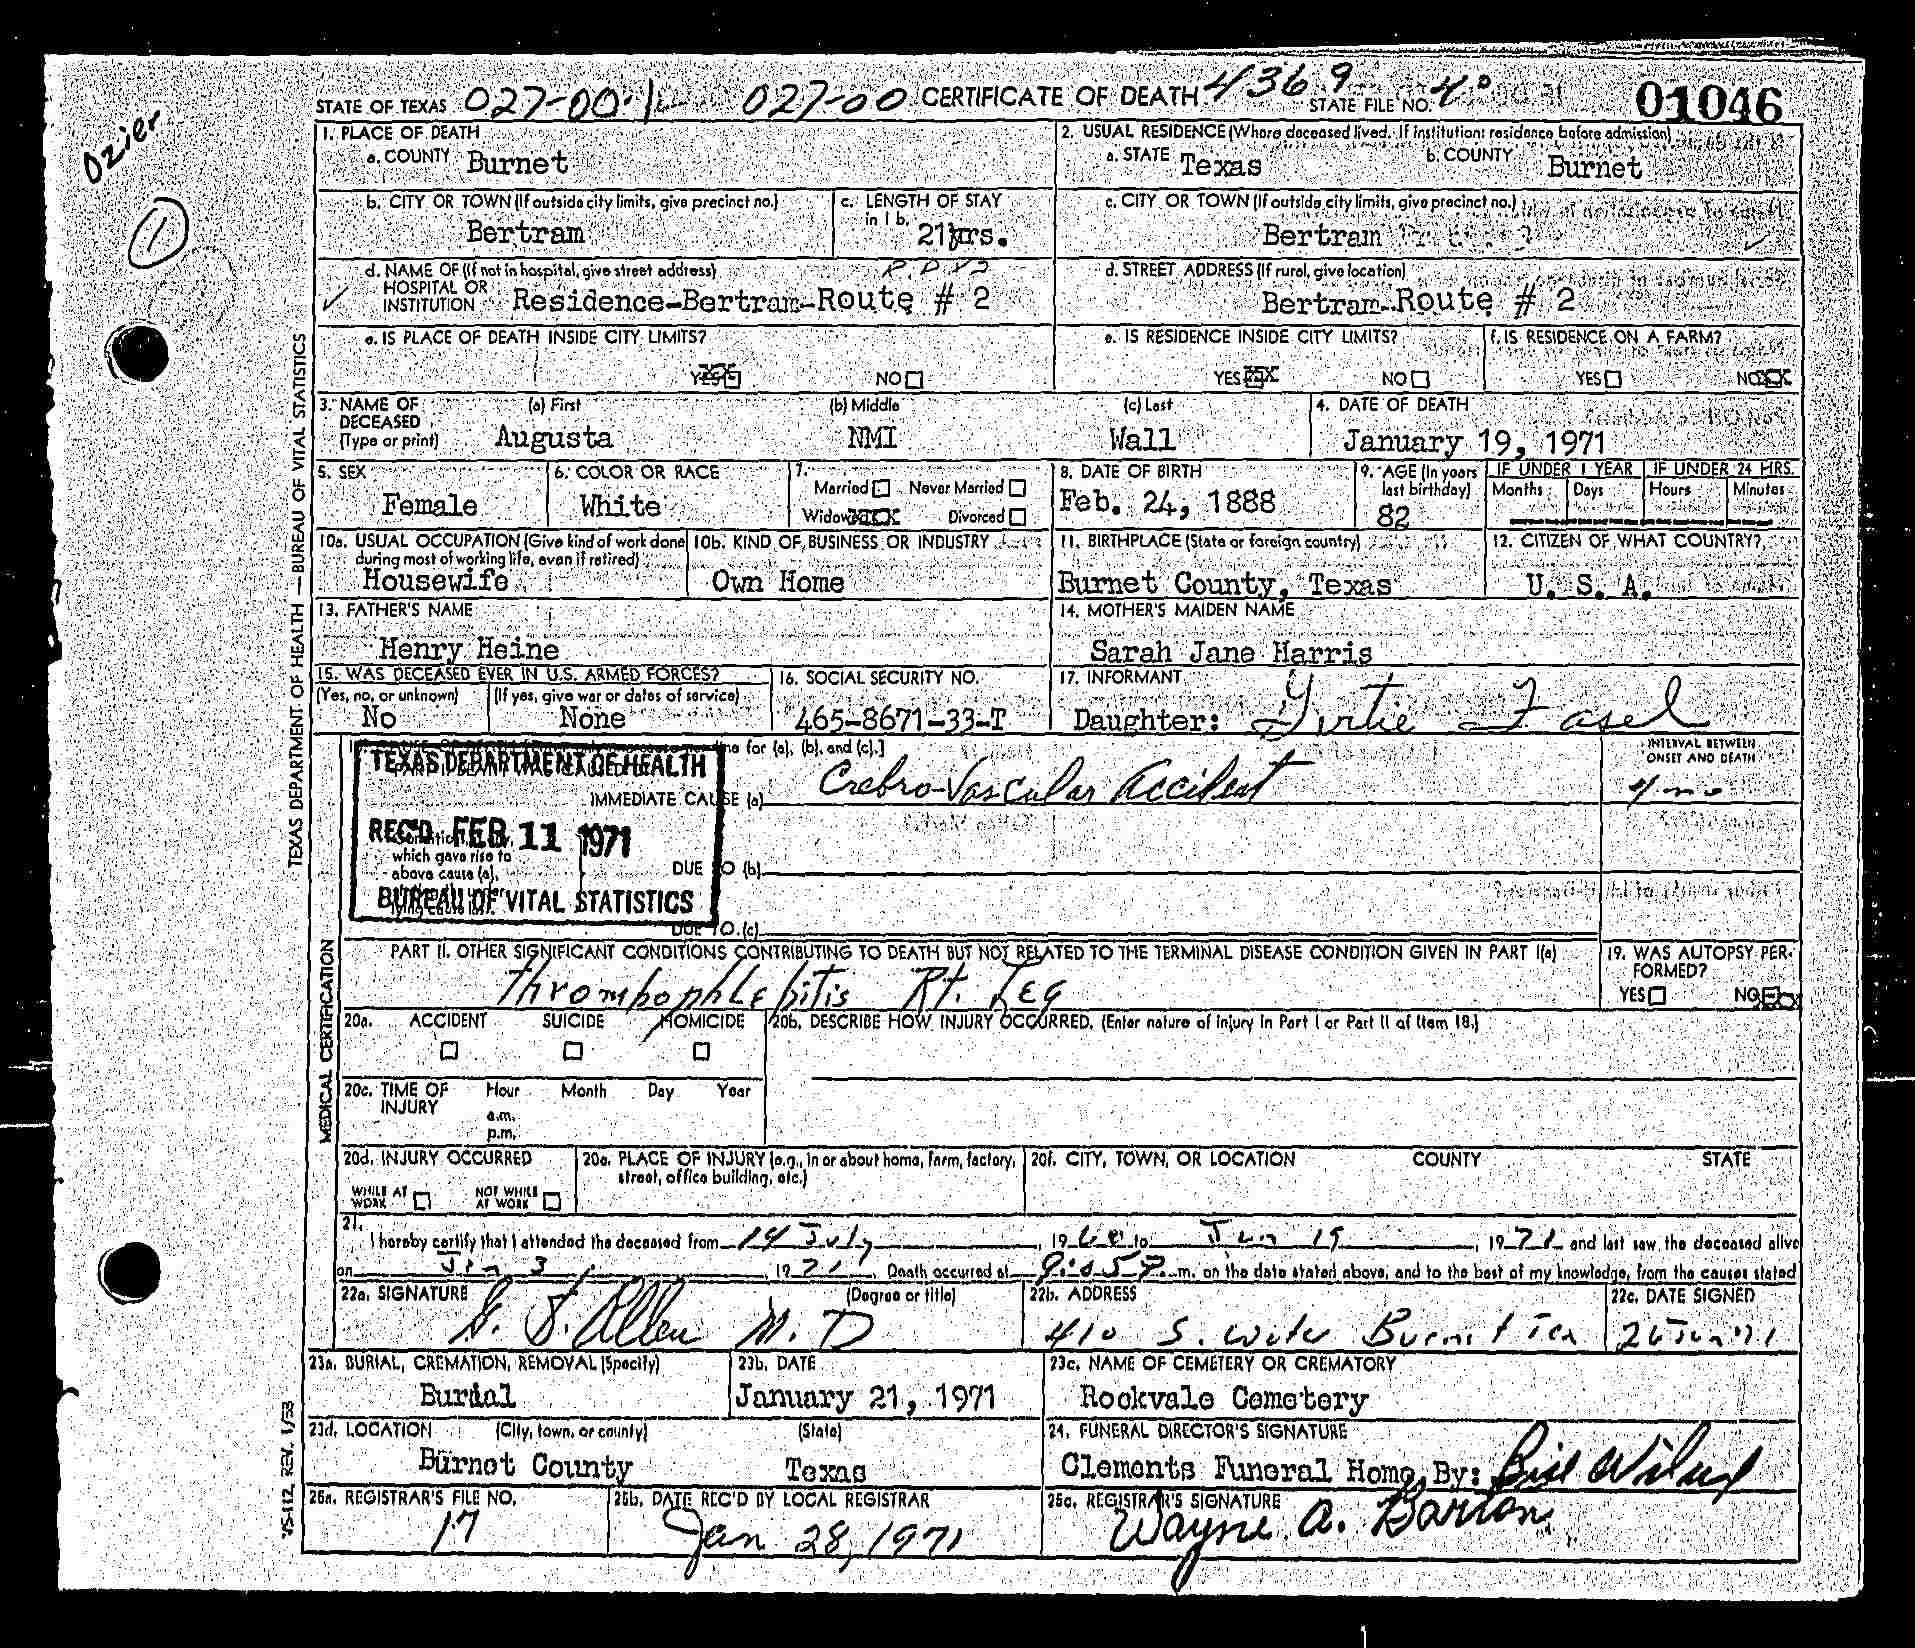 Ozier
1
STATE OF TEXAS 027-00-1 027-00 CERTIFICATE OF DEATH 4369 STATE FILE NO. 01046
1. PLACE OF DEATH
a. COUNTY Burnet
2. USUAL RESIDENCE (Where deceased lived. If institution: residence before admission)
a. STATE Texas b. COUNTY Burnet
b. CITY OR TOWN (If outside city limits, give precinct no.)
Bertram
c. LENGTH OF STAY in 1 b.
21 yrs.
c. CITY OR TOWN (If outside city limits, give precinct no.)
Bertram
d. NAME OF (If not in hospital, give street address)
HOSPITAL OR
INSTITUTION Residence-Bertram-Route # 2
d. STREET ADDRESS (If rural, give location)
Bertram-Route # 2
e. IS PLACE OF DEATH INSIDE CITY LIMITS?
YES XXX NO
e. IS RESIDENCE INSIDE CITY LIMITS?
YES XX NO
f. IS RESIDENCE ON A FARM?
YES NO XX
3. NAME OF DECEASED (Type or print)
(a) First (b) Middle (c) Last
Augusta NMI Wall
4. DATE OF DEATH
January 19, 1971
5. SEX
Female
6. COLOR OR RACE
White
7.
Married Never Married
Widowed XXX Divorced
8. DATE OF BIRTH
Feb. 24, 1888
9. AGE (In years last birthday)
82
IF UNDER 1 YEAR IF UNDER 24 HRS.
Months Days Hours Minutes
10a. USUAL OCCUPATION (Give kind of work done during most of working life, even if retired)
Housewife
10b. KIND OF BUSINESS OR INDUSTRY
Own Home
11. BIRTHPLACE (State or foreign country)
Burnet County, Texas
12. CITIZEN OF WHAT COUNTRY?
U. S. A.
13. FATHER'S NAME
Henry Heine
14. MOTHER'S MAIDEN NAME
Sarah Jane Harris
15. WAS DECEASED EVER IN U.S. ARMED FORCES?
(Yes, no, or unknown) (If yes, give war or dates of service)
No None
16. SOCIAL SECURITY NO.
465-8671-33-T
17. INFORMANT
Daughter: Girtie Fasel
for (a), (b), and (c).]
IMMEDIATE CAUSE (a) Crebro-Vascular Accident
INTERVAL BETWEEN ONSET AND DEATH
TEXAS DEPARTMENT OF HEALTH
REC'D FEB 11 1971
BUREAU OF VITAL STATISTICS
which gave rise to
above cause (a),
DUE TO (b)
DUE TO (c)
PART II. OTHER SIGNIFICANT CONDITIONS CONTRIBUTING TO DEATH BUT NOT RELATED TO THE TERMINAL DISEASE CONDITION GIVEN IN PART I(a)
Thrombophlebitis Rt. Leg
19. WAS AUTOPSY PERFORMED?
YES NO
20a. ACCIDENT SUICIDE HOMICIDE
20b. DESCRIBE HOW INJURY OCCURRED. (Enter nature of injury in Part I or Part II of Item 18.)
20c. TIME OF INJURY Hour Month Day Year
a.m.
p.m.
20d. INJURY OCCURRED
WHILE AT WORK NOT WHILE AT WORK
20e. PLACE OF INJURY (e.g., in or about home, farm, factory, street, office building, etc.)
20f. CITY, TOWN, OR LOCATION COUNTY STATE
21.
I hereby certify that I attended the deceased from 14 July, 19 to Jan 19, 1971 and last saw the deceased alive
on Jan 3, 1971. Death occurred at m. on the date stated above; and to the best of my knowledge, from the causes stated
22a. SIGNATURE (Degree or title)
Allen M.D
22b. ADDRESS
410 S. Water Burnet Tex
22c. DATE SIGNED
26 Jan 71
23a. BURIAL, CREMATION, REMOVAL (Specify)
Burial
23b. DATE
January 21, 1971
23c. NAME OF CEMETERY OR CREMATORY
Rockvale Cemetery
23d. LOCATION (City, town, or county) (State)
Burnet County Texas
24. FUNERAL DIRECTOR'S SIGNATURE
Clements Funeral Home, By:
25a. REGISTRAR'S FILE NO.
17
25b. DATE REC'D BY LOCAL REGISTRAR
Jan 28, 1971
25c. REGISTRAR'S SIGNATURE
Wayne A. Barton
TEXAS DEPARTMENT OF HEALTH — BUREAU OF VITAL STATISTICS
MEDICAL CERTIFICATION
VS-112, REV. 1/58